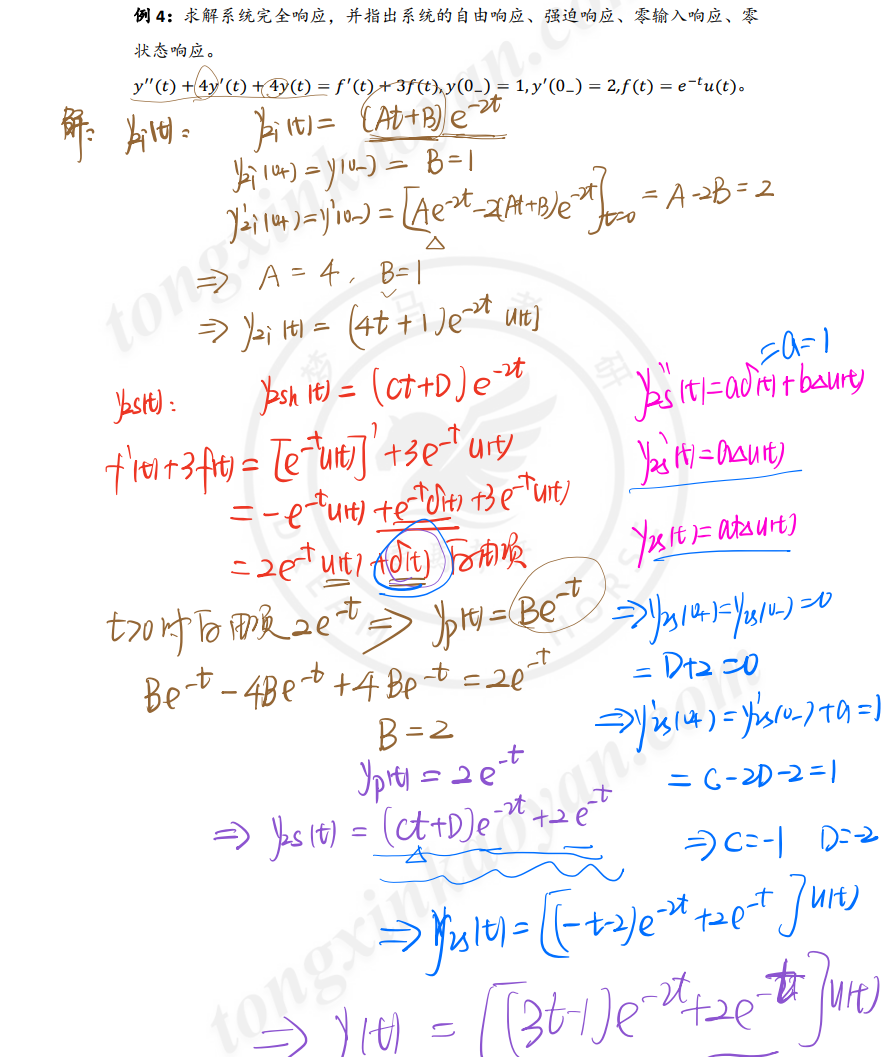 例 4：求解系统完全响应，并指出系统的自由响应、强迫响应、零输入响应、零
状态响应。
y′′(t) + 4y′(t) + 4y(t) = f′(t) + 3f(t), y(0_) = 1, y′(0_) = 2, f(t) = e⁻ᵗu(t)。
解: yzi(t): yzi(t) = (At+B)e^-2t
yzi(0+) = y(0-) = B=1
y'zi(0+) = y'(0-) = [Ae^-2t -2(At+B)e^-2t]t=0 = A-2B=2
⇒ A = 4, B=1
⇒ yzi(t) = (4t+1)e^-2t u(t)
yzs(t): yzsh(t) = (Ct+D)e^-2t
f'(t)+3f(t) = [e^-t u(t)]' + 3e^-t u(t)
= -e^-t u(t) + e^-t δ(t) + 3e^-t u(t)
= 2e^-t u(t) + δ(t) 右端项
t>0时右端项 2e^-t ⇒ yp(t) = Be^-t
Be^-t - 4Be^-t + 4Be^-t = 2e^-t
B=2
yp(t) = 2e^-t
⇒ yzs(t) = (Ct+D)e^-2t + 2e^-t
= a=1
y''zs(t) = aδ(t) + bΔu(t)
y'zs(t) = aΔu(t)
yzs(t) = atΔu(t)
⇒ yzs(0+) = yzs(0-) = 0
= D+2 = 0
⇒ y'zs(0+) = y'zs(0-) + a = 1
= C-2D-2 = 1
⇒ C=-1 D=-2
⇒ yzs(t) = [(-t-2)e^-2t + 2e^-t]u(t)
⇒ y(t) = [(3t-1)e^-2t + 2e^-t]u(t)
tongxinkaoyan.com